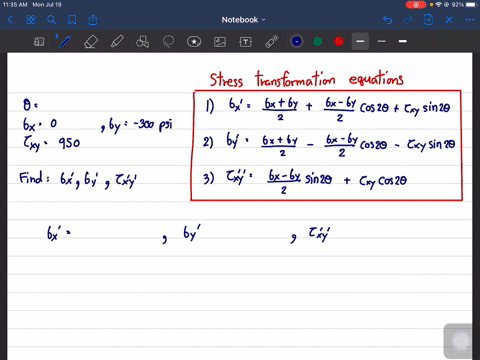 11:35 AM Mon Jul 19
92%
Notebook
Stress transformation equations
θ =
σx = 0 , σy = -300 psi
τxy = 950
Find : σx' , σy' , τx'y'
1) σx' = (σx + σy)/2 + (σx - σy)/2 cos2θ + τxy sin2θ
2) σy' = (σx + σy)/2 - (σx - σy)/2 cos2θ - τxy sin2θ
3) τx'y' = (σx - σy)/2 sin2θ + τxy cos2θ
σx' = , σy' , τx'y'